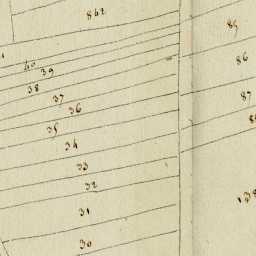 862
85
40
39
86
38
37
87
36
35
34
33
32
31
30